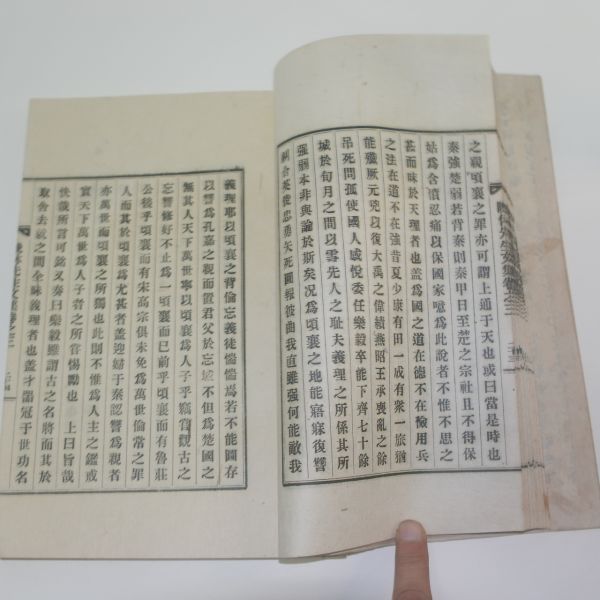 之親頃襄之罪亦可謂上通于天也或曰當是時也
秦強楚弱若背秦則秦甲日至楚之宗社且不得保
姑爲含憤忍痛以保國家噫爲此說者不惟不思之
甚而昧於天理者也盖爲國之道在德不在險用兵
之法在道不在強昔夏少康有田一成有衆一旅猶
能殲厥元兇以復大禹之偉績燕昭王承喪亂之餘
吊死問孤使國人感悅委任樂毅卒能下齊七十餘
城於旬月之間以雪先人之耻夫義理之所係其所
強弱本非與論於斯矣况爲頃襄之地能寤寐復讐
糾合英俊忠勇矢死圖報彼曲我直雖强何能敵我
義理耶以頃襄之背倫忘義徒惴惴焉若不能圖存
以讐爲孔嘉之親而置君父於忘域不但爲楚國之
無其人天下萬世寧以頃襄爲人子乎竊嘗觀古之
忘讐修好不止爲一頃襄而已前乎頃襄而有魯莊
公後乎頃襄而有宋高宗俱未免爲萬世倫常之罪
人而其於頃襄爲尤甚者盖迎婦于秦認讐爲親者
亦萬世而頃襄之所獨也此則不惟爲人主之鑑戒
實天下萬世爲人子者之所當惕勵也 上曰旨哉
快哉所言可銘又奏曰樂毅雖謂古之名將而其於
取舍去就之間全昧義理者也盖才器冠于世功名